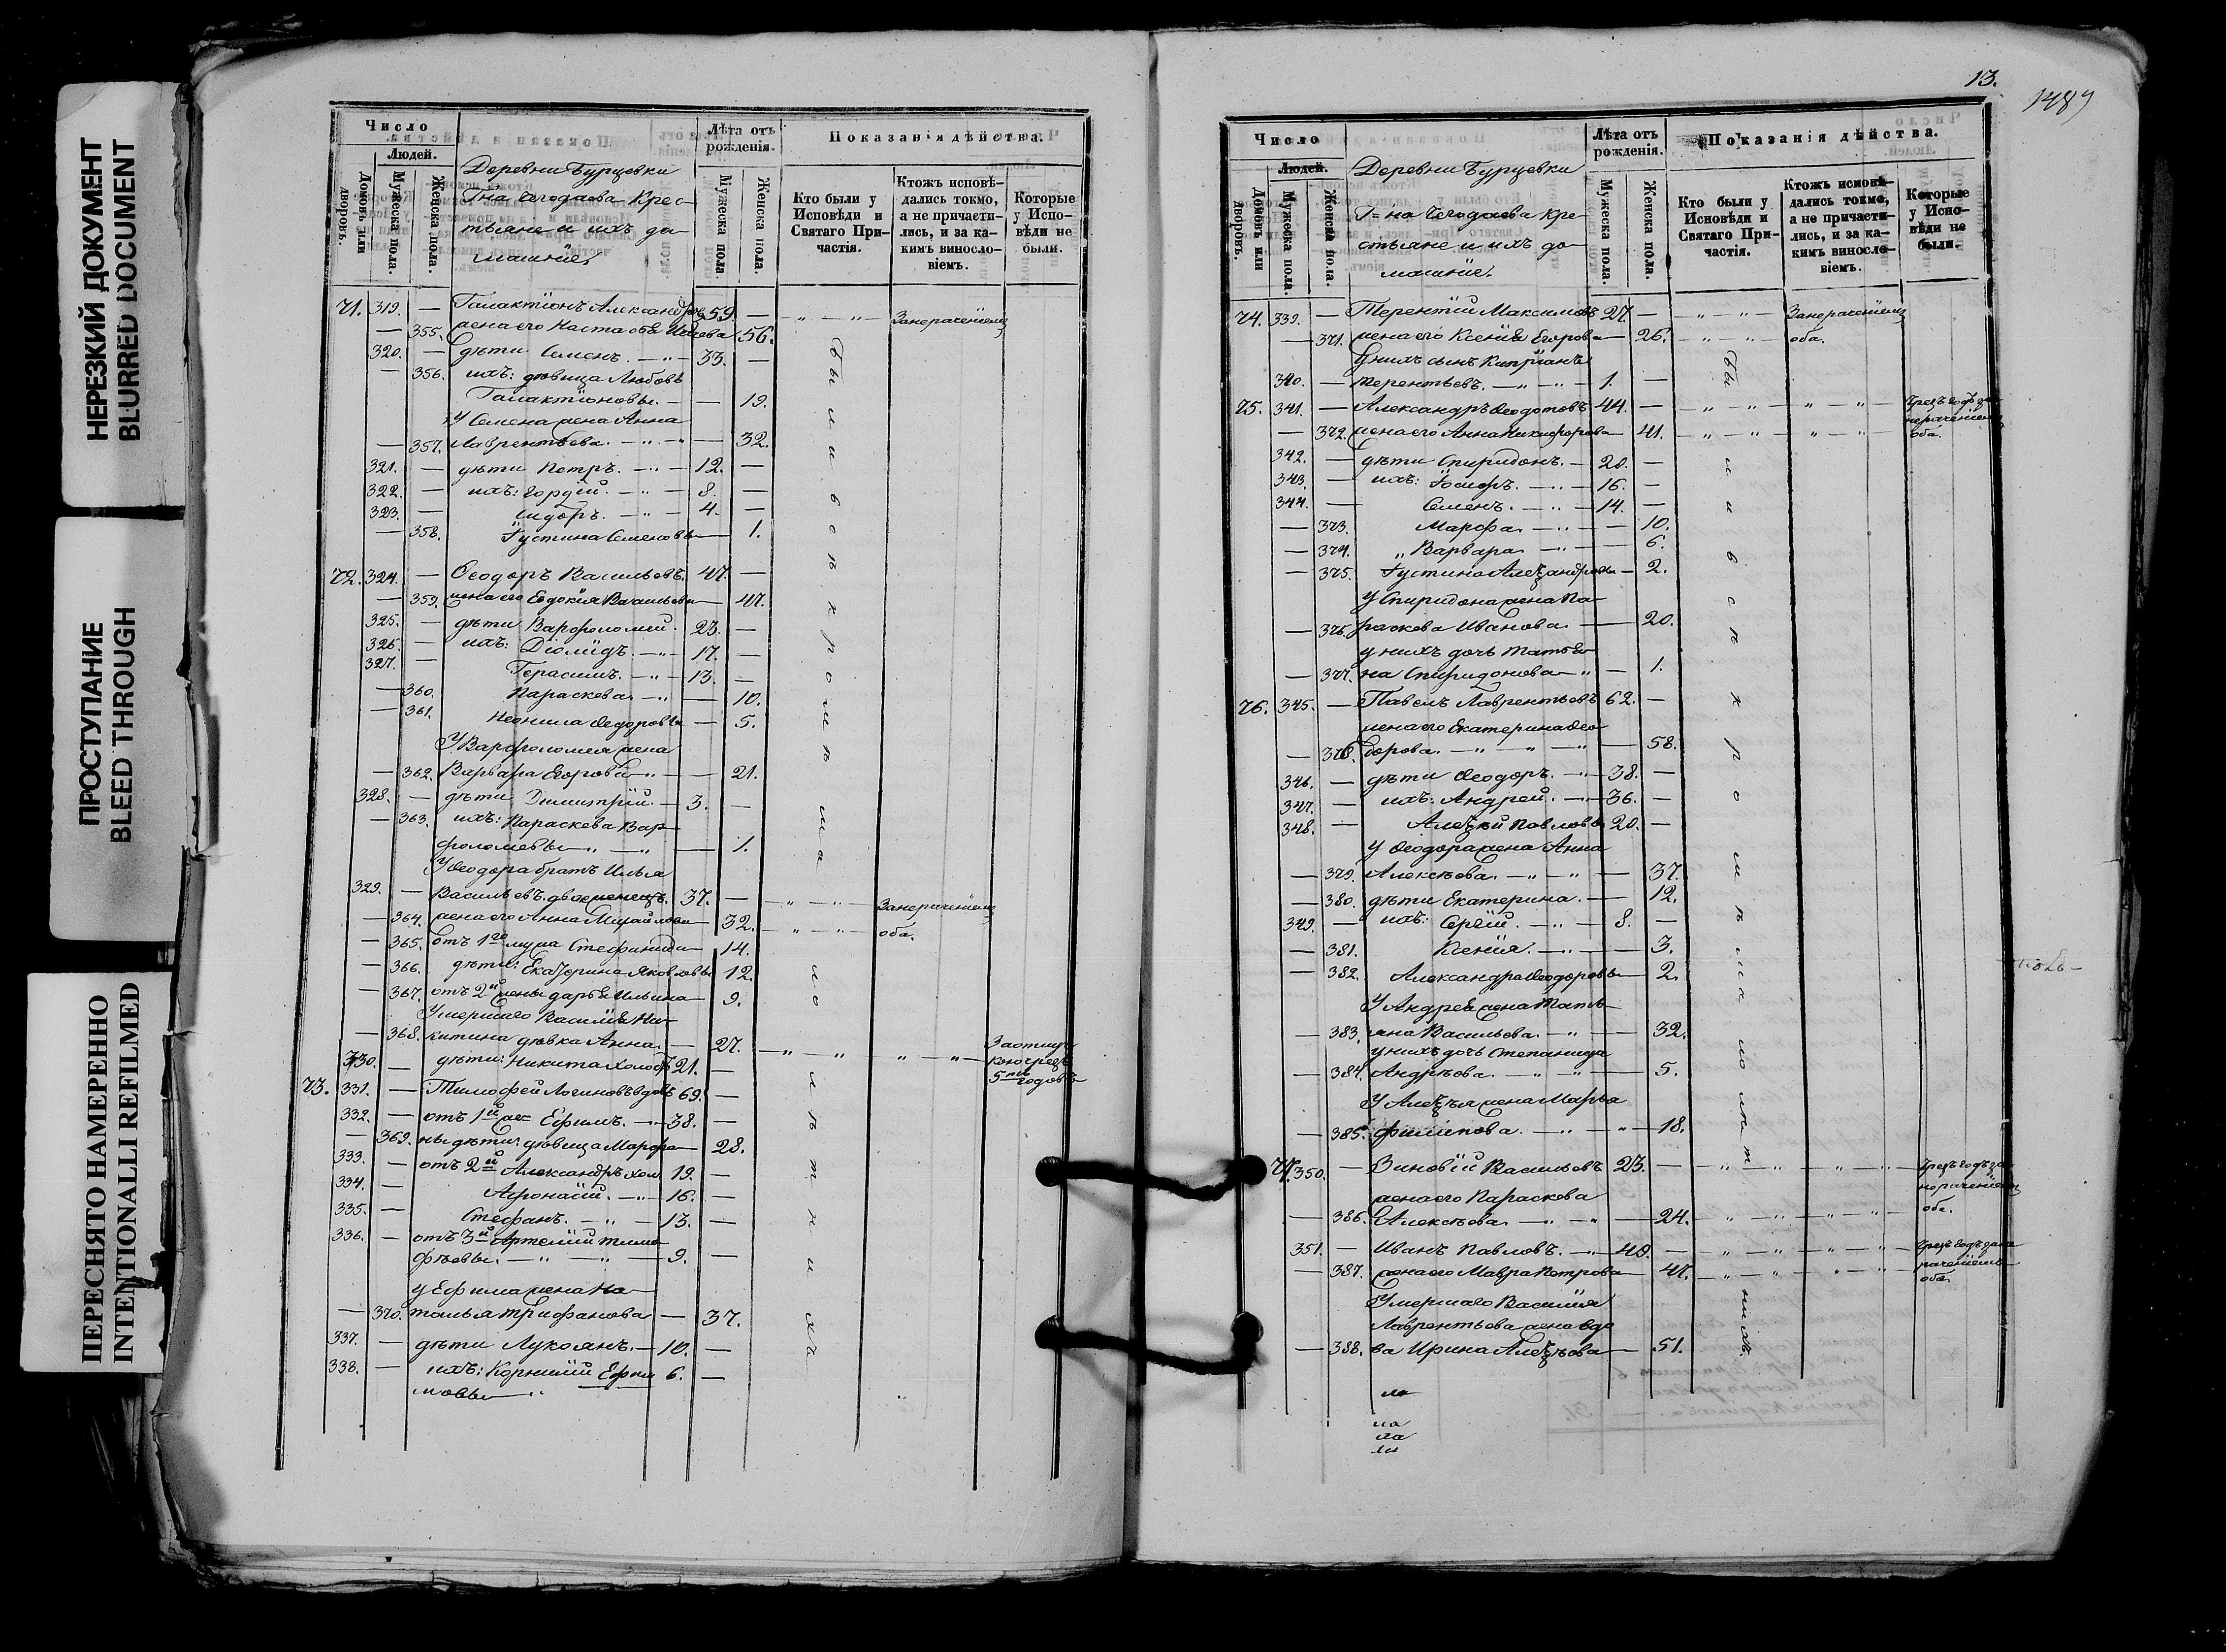 НЕРЕЗКИЙ ДОКУМЕНТ
BLURRED DOCUMENT
ПРОСТУПАНИЕ
BLEED THROUGH
ПЕРЕСНЯТО НАМЕРЕННО
INTENTIONALLI REFILMED
Число
Людей.
Домовъ или дворовъ.
Мужеска пола.
Женска пола.
Деревни Бурцевки
Г-на Чегодаева Крес-
тьяне и ихъ до-
машніе,
Лѣта отъ рожденія.
Мужеска пола.
Женска пола.
Показанія дѣйства.
Кто были у Исповѣди и Святаго При-частія.
Ктожъ исповѣ-дались токмо, а не причасти-лись, и за ка-кимъ винсло-віемъ.
Которые у Испо-вѣди не были.
71. 319. — Галактіонъ Александровъ 59. — „ — „ — Занерачѣніемъ
— 355. жена его Настасья 56.
320. — дѣти Семенъ. — „ — 33. —
— 356. ихъ: дѣвица Любовь
Галактіоновы. — — 19.
У Семена жена Анна
— 357. Лаврентьева. — „ — „ — 32.
321. — дѣти Петръ. — „ — 12. —
322. — ихъ: Гордѣй. — „ — 8. —
323. — Сидоръ. — „ — 4. —
— 358. Густина Семеновы — 1.
72. 324. — Ѳеодоръ Васильевъ. 47. —
— 359. жена его Евдокія Васильева — 47.
325. — дѣти Варфоломей. 23. —
326. — ихъ: Діомидъ. — „ — 17. —
327. — Герасимъ. — „ — 13. —
— 360. Параскева — „ — 10.
— 361. Неонила Ѳедоровы — 5.
У Варфоломея жена
— 362. Варвара Егорова — „ — 21.
328. — дѣти Димитрій. — 3. —
— 363. ихъ: Параскева Вар-
фоломеевы — „ — „ — 1.
У Ѳеодора братъ Илья
329. — Васильевъ двоеженецъ. 37. — „ — „ — Занерачѣніемъ
— 364. жена его Анна Михайлова — 32. — „ — „ — оба.
— 365. отъ 1го мужа Стефанида — 14.
— 366. дѣти: Екатерина Яковлевы 12.
— 367. отъ 2й жены Дарья Ильина — 9.
Умершаго Василія Ни-
— 368. китина дѣвка Анна. — 27. — „ — „ „ — „ —
330. — дѣти: Никита Холостъ 21. —
5ти годовъ
73. 331. — Тимофей Логиновъ вдовъ 69. —
332. — отъ 1й же= Ефимъ. — 38. —
— 369. ны дѣти: дѣвица Марфа — 28.
333. — отъ 2й Александръ хол. 19. —
334. — Афонасій. — „ — 16. —
335. — Стефанъ. — „ — 13. —
336. — отъ 3й Артемій Тимо-
фѣевы. — „ — „ — 9. —
у Ефима жена На-
— 370. талья Трифанова — 37.
337. — дѣти Лукоянъ. — 10. —
338. — ихъ: Корнилій Ефи 6. —
мовы — „
были и в с п х ро ми въ ма ло лѣт н и хъ
13.
1489
Число
Людей.
Домовъ или дворовъ.
Мужеска пола.
Женска пола.
Деревни Бурцевки
Г=на Чегодаева Кре-
стьяне и ихъ до-
машніе.
Лѣта отъ рожденія.
Мужеска пола.
Женска пола.
Показанія дѣйства.
Кто были у Исповѣди и Святаго При-частія.
Ктожъ исповѣ-дались токмо, а не причасти-лись, и за ка-кимъ винсло-віемъ.
Которые у Испо-вѣди не были.
74. 339. — Терентій Максимовъ 27. — „ — „ — Занерачѣніемъ
— 371. жена его Ксенія Егорова — 26. — „ — „ — оба.
У нихъ сынъ Кипріанъ
340. — Терентьевъ. — „ — „ — 1. —
75. 341. — Александръ Ѳеодотовъ 44. — „ — „ — „ — „ Чрезъ годъ за
нерачѣніемъ
— 372. жена его Анна Никифорова — 41. — „ — „ — „ — „ оба.
342. — дѣти Спиридонъ. — 20. —
343. — ихъ: Іосифъ. — „ — 16. —
344. — Семенъ. — „ — 14. —
— 373. Марфа. — „ — 10.
— 374. „ Варвара — „ — 6.
— 375. Густина Александровы — 2.
У Спиридона жена Па-
— 376. раскева Иванова. — 20.
у нихъ дочь Татья-
— 377. на Спиридонова „ — 1.
76. 345. — Павелъ Лаврентьевъ 62. —
жена его Екатерина Ѳео
— 378. дорова. — „ — „ — „ — 58.
346. — дѣти Ѳеодоръ. — „ — 38. —
347. — ихъ: Андрей. — „ — 36. —
348. — Алеѯѣй Павловы 20. —
У Ѳеодора жена Анна
— 379. Алексѣева. — „ — „ — 37.
— 380. дѣти Екатерина. — 12.
349. — ихъ: Сергій. — „ — 8. —
— 381. Ксенія. — „ — 3.
— 382. Александра Ѳеодоровы — 2.
У Андрея жена Татья-
— 383. яна Васильева. — „ — 32.
у нихъ дочь Степанида
— 384. Андрѣева. — „ — „ — 5.
У Алеѯѣя жена Марья
— 385. Филипова. — „ — „ — 18.
77. 350. — Зиновій Васильевъ 23. — „ — „ — „ — „ — Чрезъ годъ за
нерачѣніемъ
жена его Параскева
— 386. Алексѣева. — „ — „ — 24. — „ — „ — „ — „ оба.
351. — Иванъ Павловъ. — „ — 49. — „ — „ — „ — „ — Чрезъ годъ зане
рачѣніемъ
— 387. жена его Мавра Петрова — 47. — „ — „ — „ — „ оба.
Умершаго Василія
Лаврентьева жена вдо
— 388. ва Ирина Алеѯѣева — 51.